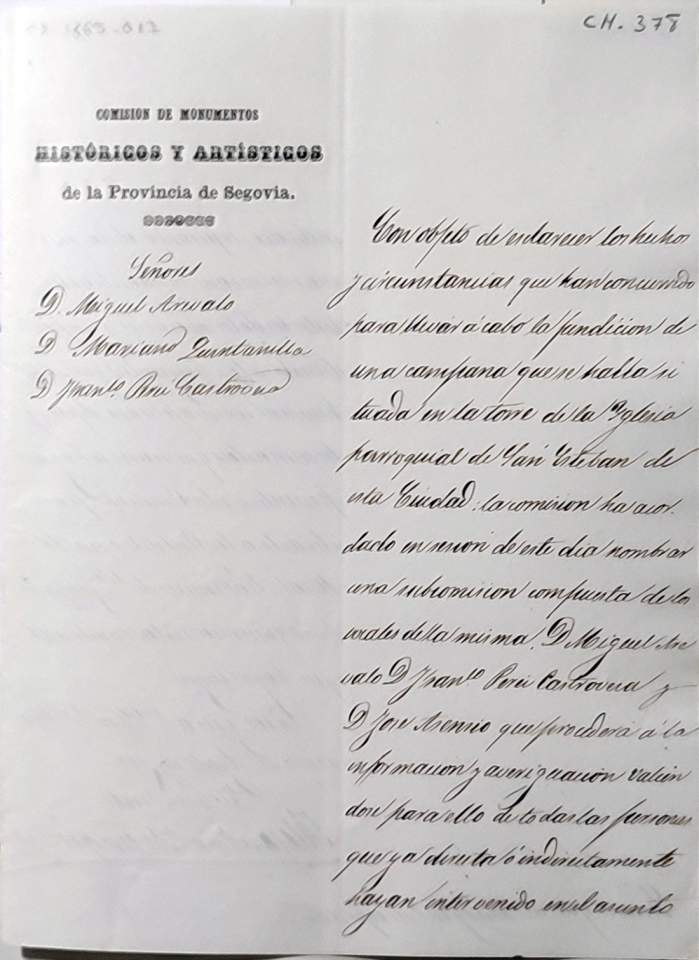 CH. 378
COMISION DE MONUMENTOS
HISTÓRICOS Y ARTÍSTICOS
de la Provincia de Segovia.
Señores
D. Miguel Arevalo
D Mariano Quintanilla
D Franco. Perez Castrovera
Con objeto de esclarecer los hechos
y circunstancias que han concurrido
para llevar á cabo la fundicion de
una campana que se halla si
tuada en la torre de la Yglesia
parroquial de San Esteban de
esta Ciudad, la comision ha acor
dado en sesion de este dia nombrar
una subcomision compuesta de los
vocales de la misma, D Miguel Are
valo D Franco Perez Castrovera y
D Jose Asensio que procederá á la
informacion y averiguacion valien
dose para ello de todas las personas
que ya directa ó indirectamente
hayan intervenido en el asunto